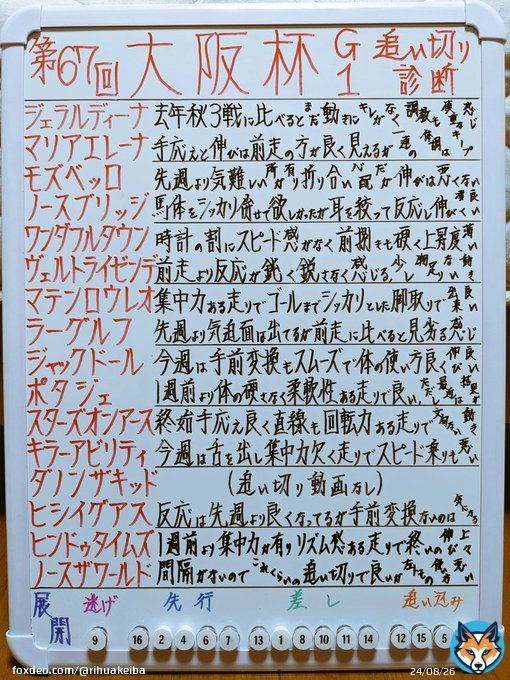 第67回 大阪杯 G1 追い切り診断
ジェラルディーナ 去年秋3戦に比べるとまだ動きにキレがなく
マリアエレーナ 手応えと伸びは前走の方が良く見えるが
モズベッロ 先週より気難しい所有り折り合い心配だが伸びは悪くない
ノースブリッジ 馬体をシッカリ併せて欲しかったが耳を絞って反応し伸びも良い
ワンダフルタウン 時計の割にスピード感がなく前捌きも硬く上昇度薄い
ヴェルトライゼンデ 前走より反応が鈍く鋭さなく感じる、少し
マテンロウレオ 集中力ある走りでゴールまでシッカリとした脚取りで出来良い
ラーグルフ 先週より気迫面は出てるが前走に比べると見劣る感じ
ジャックドール 今週は手前変換もスムーズで体の使い方良く伸び良い
ポタジェ 1週前より体の硬さなく柔軟性ある走りで良い、ただ
スターズオンアース 終始手応え良く直線も回転力ある走りで文句ない動き
キラーアビリティ 今週は舌を出し集中力欠く走りでスピード乗りも悪い
ダノンザキッド (追い切り動画なし)
ヒシイグアス 反応は先週より良くなってるが手前変換ないのは気になる
ヒンドゥタイムズ 1週前より集中力が有りリズム感ある走りで終いの伸び上々
ノースザワールド 間隔がないのでこれくらいの追い切りで良いが
展開 逃げ 先行 差し 追い込み
9 16 2 4 6 1 13 8 10 11 7 14 3 12 15 5
foxdeo.com/@rihuakeiba
24/08/26